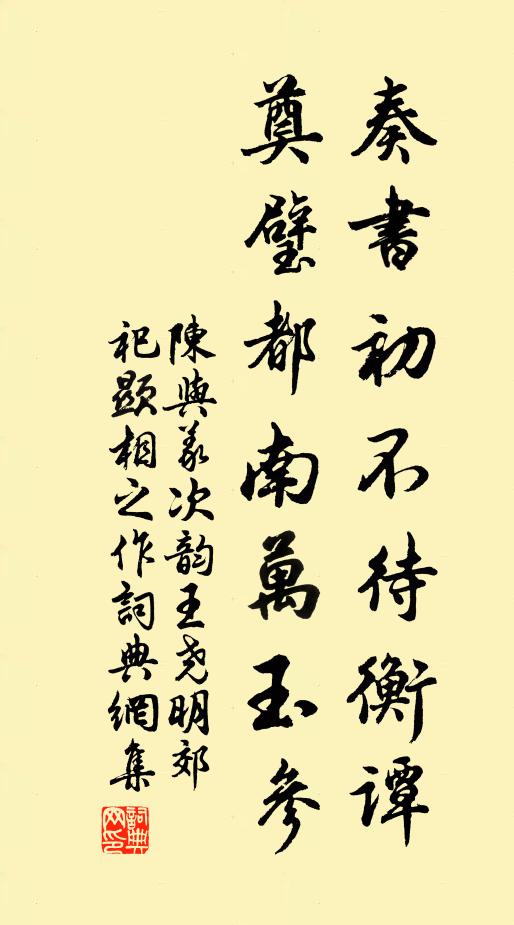 奏書初不待衡譚
奠璧都南萬玉參
陳與義次韵王尧明郊
祀顯相之作詞典網集
詞典
网印